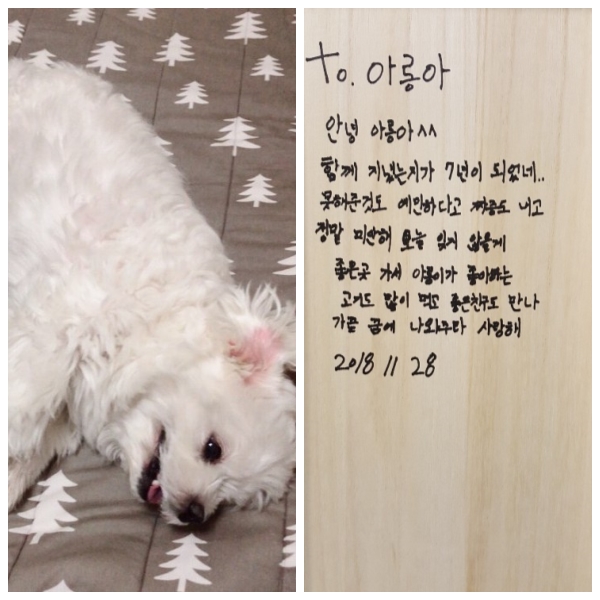 To. 아롱아
안녕 아롱아^^
함께 지냈는지가 7년이 되었네..
못해준것도 예민하다고 짜증도 내고
정말 미안해 오늘 잊지 않을게
좋은곳 가서 아롱이가 좋아하는
고기도 많이 먹고 좋은친구도 만나
가끔 꿈에 나와주라 사랑해
2018 11 28